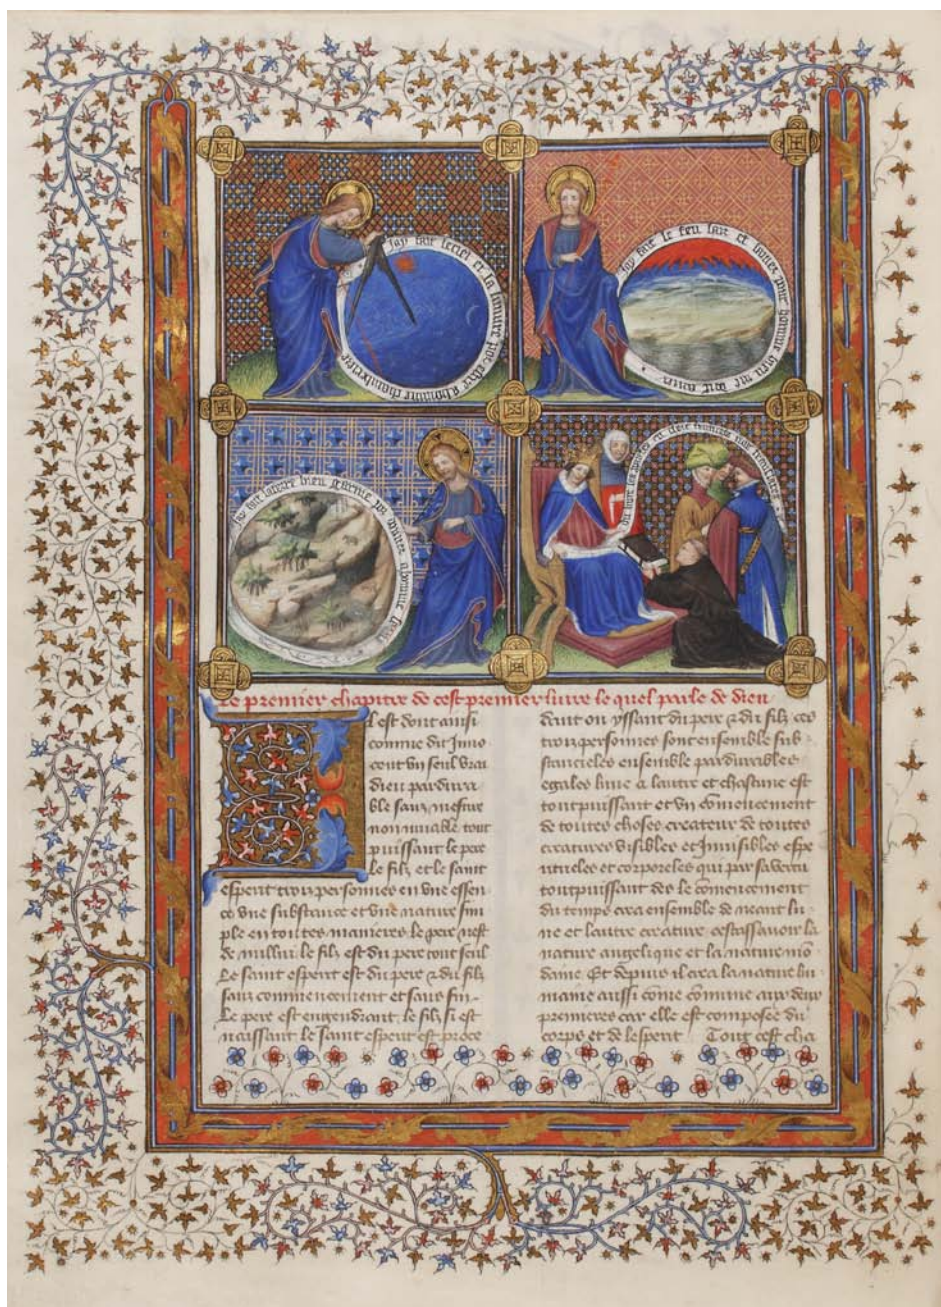 Jay fait le ciel et la lumiere por estre a homme chamberiere
Jay fait le feu lair et la mer pour homme bien me doit amer
Jay fait la terre bien garnie por donner a homme
du livre les en cler francois
Le premier chapitre de cest premier livre le quel parle de dieu
Il est dont ainsi
comme dit Inno
cent un seul vrai
dieu pardura
ble sanz mesure
non muable tout
puissant le pere
le filz et le saint
esperit trois personnes en une essen
ce une substance et une nature sim
ple en toutes manieres le pere nest
de nullui. le filz est du pere tout seul
Le saint esperit est du pere & du filz
sanz commencement et sans fin.
Le pere est engendrant. le filz si est
naissant le saint esperit est proce
dant ou yssant du pere & du filz ces
trois personnes sont ensemble sub
stancieles ensemble pardurables
egales lune a lautre et chascune est
tout puissant et un comencement
de toutes choses createur de toutes
creatures visibles et invisibles espi
ritueles et corporeles qui par sa vertu
tout puissant des le comencement
du temps crea ensemble de neant lu
ne et lautre creature. cest assavoir la
nature angelique et la nature mo
daine Et depuis il crea la nature hu
maine aussi come comune aux deux
premieres car elle est composee du
corps et de lesperit Tout cest cha